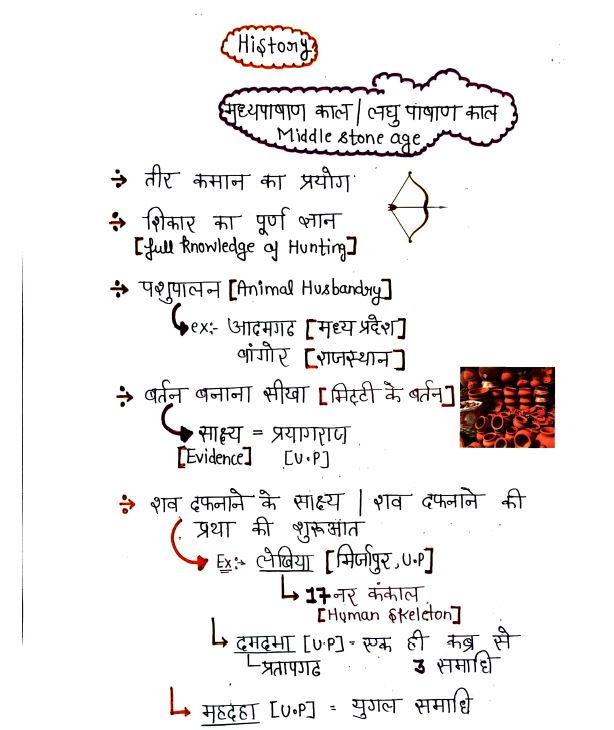 History
मध्यपाषाण काल / लघु पाषाण काल
Middle stone age
÷ तीर कमान का प्रयोग
÷ शिकार का पूर्ण ज्ञान
[full knowledge of Hunting]
÷ पशुपालन [Animal Husbandry]
ex:- आदमगढ [मध्य प्रदेश]
बांगोर [राजस्थान]
÷ बर्तन बनाना सीखा [मिट्टी के बर्तन]
साक्ष्य = प्रयागराज
[Evidence] [U.P]
÷ शव दफनाने के साक्ष्य / शव दफनाने की
प्रथा की शुरूआत
Ex:- लेखिया [मिर्जापुर, U.P]
17 नर कंकाल
[Human Skeleton]
दमदमा [U.P] = एक ही कब्र से
प्रतापगढ 3 समाधि
महदहा [U.P] = युगल समाधि